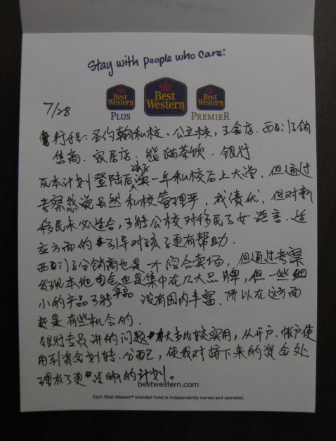 Stay with people who care.
Best Western
PLUS
Best Western
Best Western
PREMIER
7/28
行程:圣约翰私校、公立校、五金店、西门子销
售商、家居店、熊猫餐饮、银行
原本计划登陆后读一年私校后上大学,但通过
考察感觉虽然私校管理严,成绩优,但对新
移民未必适合,了解公校对移民子女语言、适
应方面的引导对孩子更有帮助。
西门子分销商也是不设会卖场,但通过考察
发现本地也是集中在几大品牌,但一些细
小的产品了解没有国内丰富,所以在这方面
还是有些机会的。
银行专员讲的问题大多比较实用,从开户、帐户使
用到资金划转、分配,使我对接下来的资金处
理有了更清晰的计划。
bestwestern.com
Each Best Western® branded hotel is independently owned and operated.